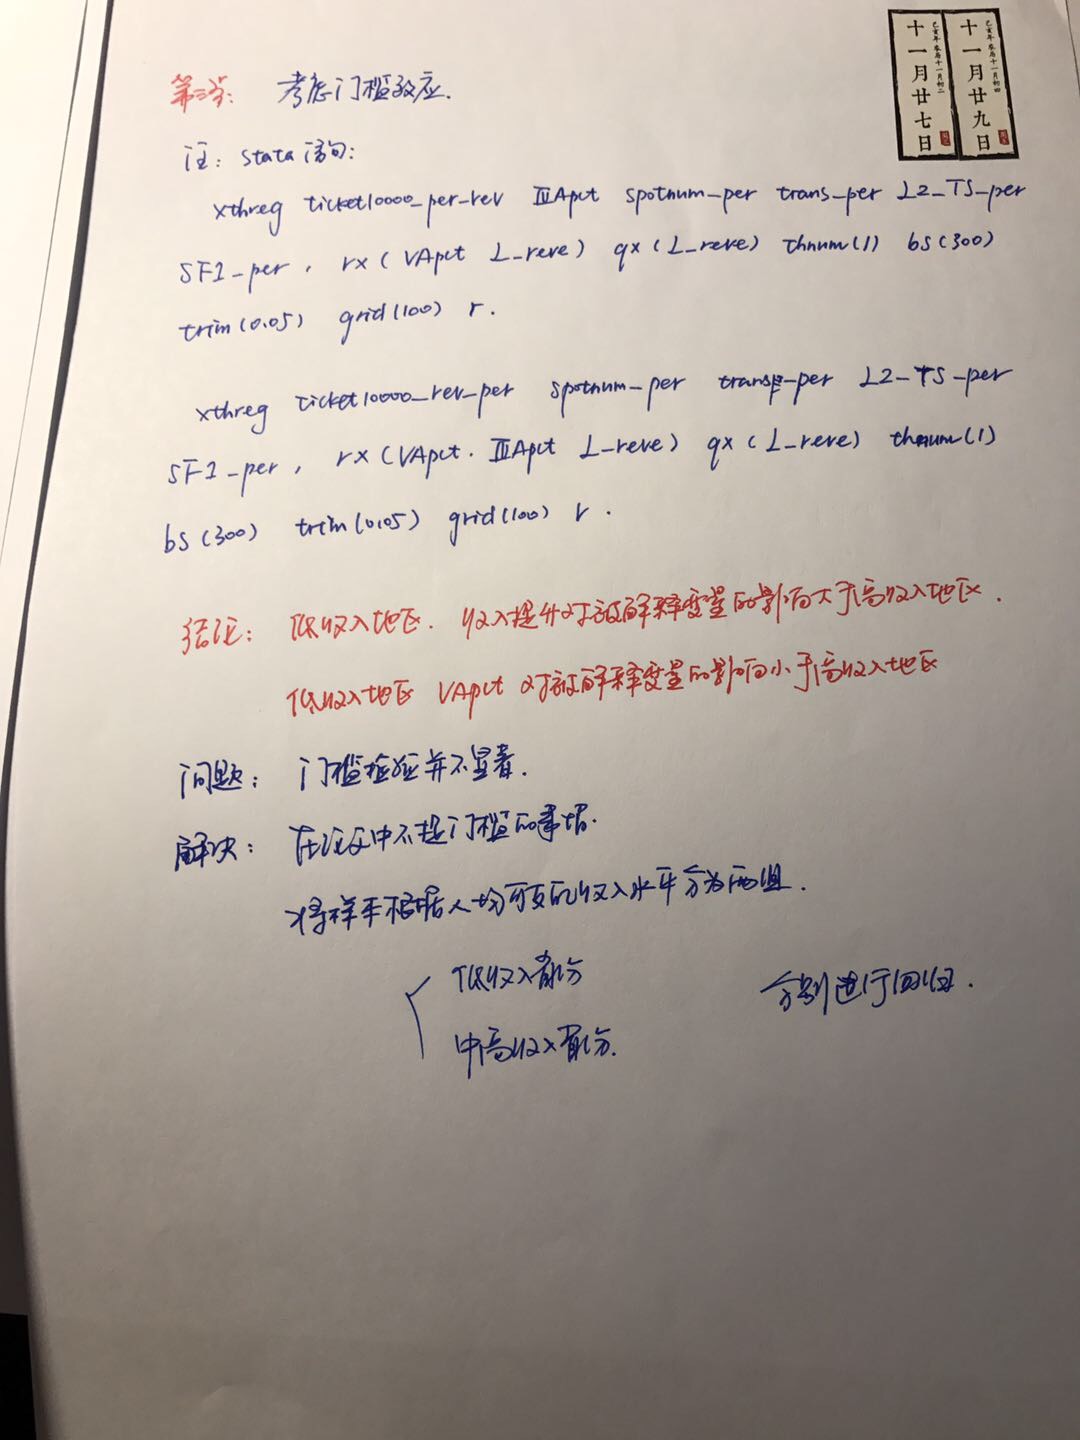 己亥年 冬月十一月初二
十一月廿七日
己亥年 冬月十一月初四
十一月廿九日
第三步: 考虑门槛效应.
注: stata语句:
xthreg ticket10000_per_rev ⅢApct spotnum_per trans_per L2_TS_per
SF1_per, rx(VApct L_reve) qx(L_reve) thnum(1) bs(300)
trim(0.05) grid(100) r.
xthreg ticket10000_rev_per spotnum_per trans_per L2_TS_per
SF1_per, rx(VApct. ⅢApct L_reve) qx(L_reve) thnum(1)
bs(300) trim(0.05) grid(100) r.
结论: 低收入地区. 收入提升对被解释变量的影响大于高收入地区.
低收入地区 VApct 对被解释变量的影响小于高收入地区
问题: 门槛检验并不显著.
解决: 在论文中不提门槛的事情.
将样本根据人均可支配收入水平分为两组.
低收入省份
分别进行回归.
中高收入省份.